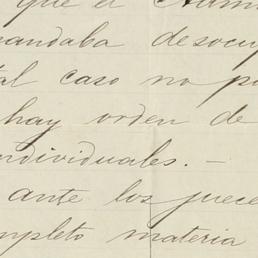 que el Admi
mandaba desocu
tal caso no p
hay orden de
individuales. —
ante los juece
mpleto materia